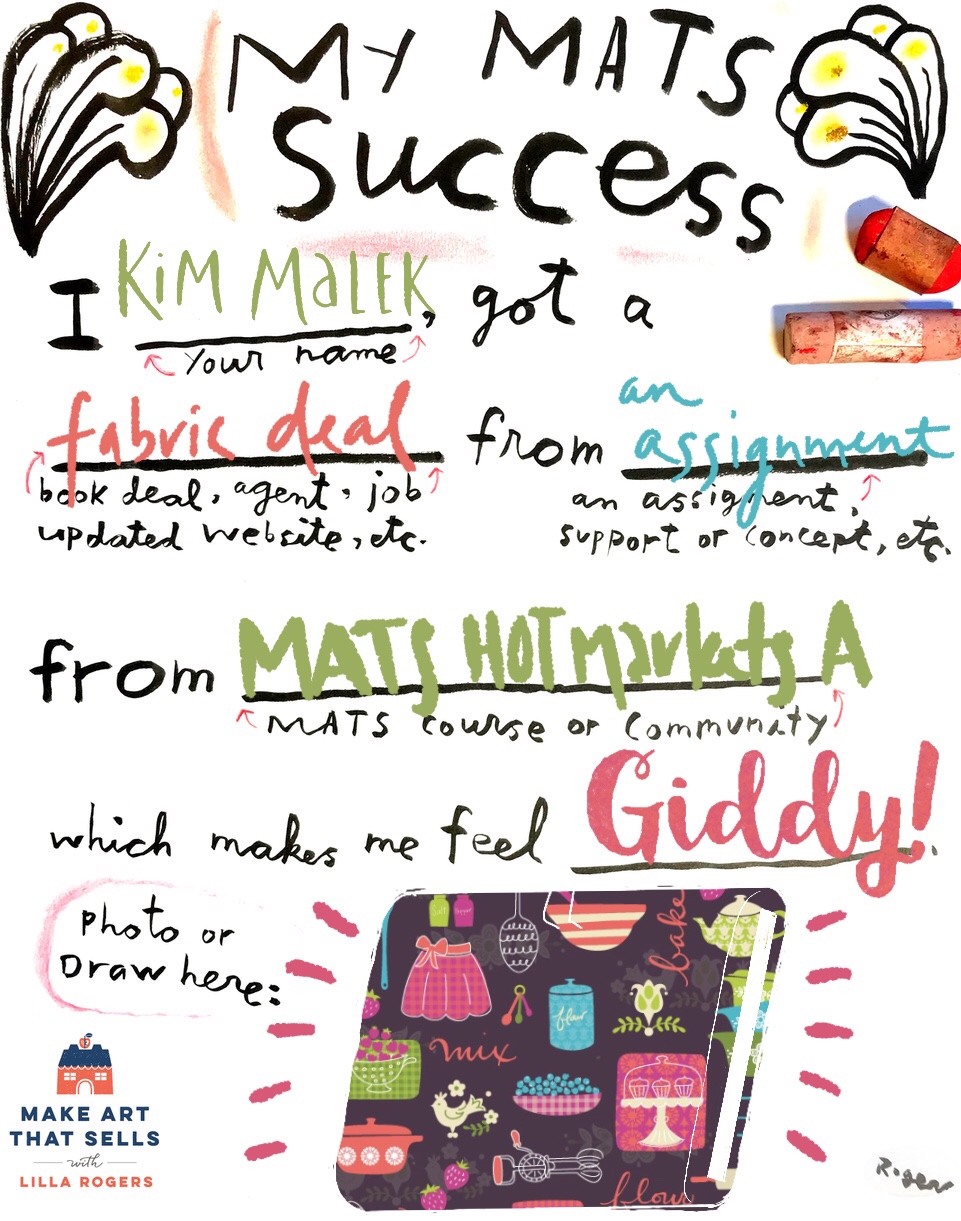 MY MATS
Success
I Kim Malek, got a
your name
fabric deal from an assignment
book deal, agent, job
updated website, etc.
an assigment,
support or concept, etc.
from MATS HOT markets A
MATS course or Community
which makes me feel Giddy!.
photo or
Draw here:
Salt
Pepper
bake
flour
mix
flour
MAKE ART
THAT SELLS
with
LILLA ROGERS
Rogers